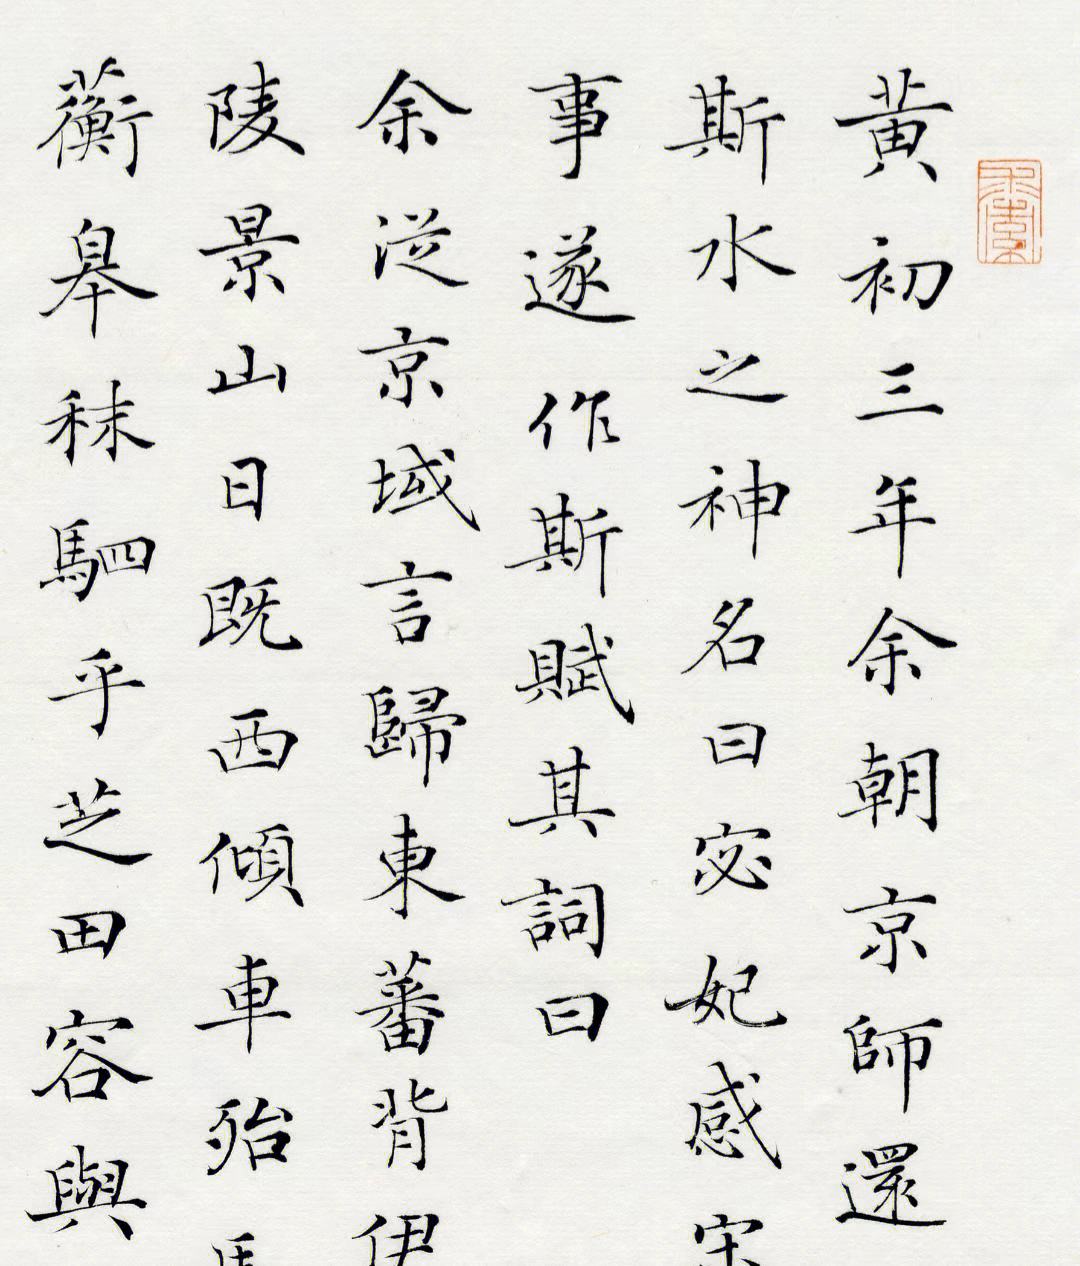 黃初三年余朝京師還
斯水之神名曰宓妃感宋
事遂作斯賦其詞曰
余從京域言歸東蕃背伊
陵景山日既西傾車殆馬
蘅皋秣駟乎芝田容與